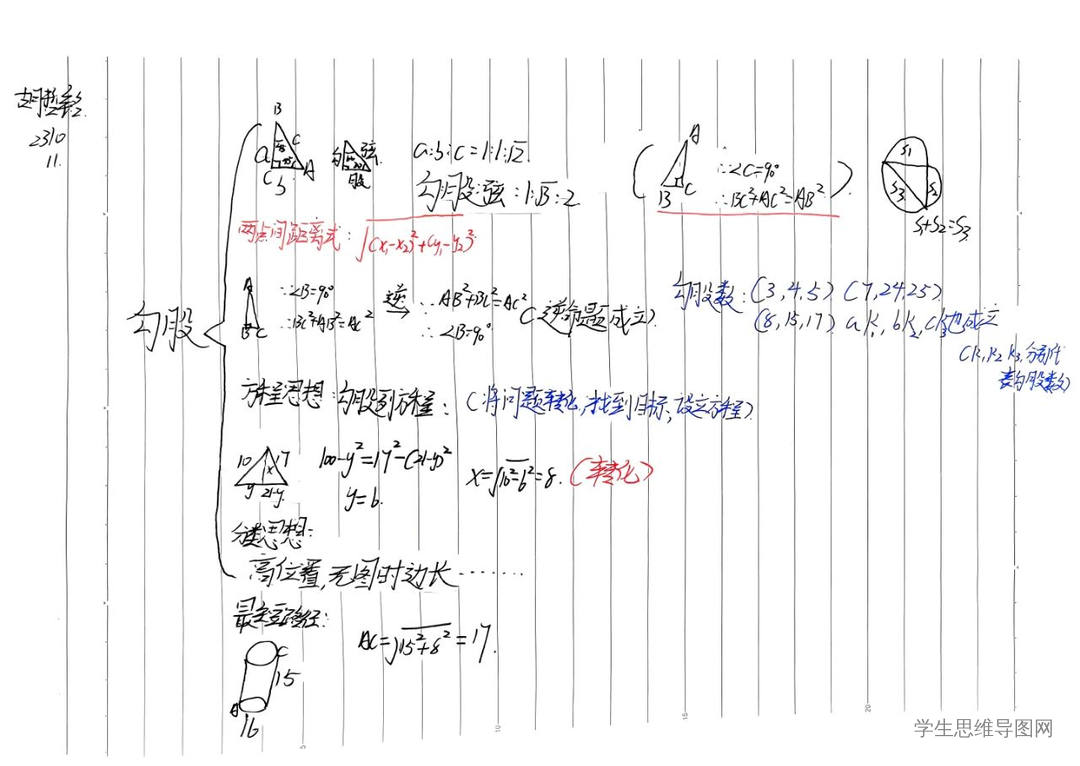 2310
11.
B
a
c
C
b
A
勾
弦
股
a:b:c=1:1:√2
勾:股:弦:1:√3:2
A
B
C
∵∠C=90°
∴BC²+AC²=AB²
S1
S3
S2
S1+S2=S3
两点间距离式:√(x1-x2)²+(y1-y2)²
勾股
A
B
C
∵∠B=90°
∴BC²+AB²=AC²
逆
∵AB²+BC²=AC²
∴∠B=90°
(逆命题成立)
勾股数:(3,4,5) (7,24,25)
(8,15,17) ak1,bk2,ck3也成立
(k1,k2,k3,分别代
表勾股数)
方程思想:勾股到方程:(将问题转化,找到目标,设立方程)
10
17
x
y
21-y
100-y²=17²-(21-y)²
y=6
x=√10²-6²=8.(转化)
分类思想:
高位置,无图时边长……
最短路径:
C
15
A
16
AC=√15²+8²=17.
5
10
15
20
学生思维导图网